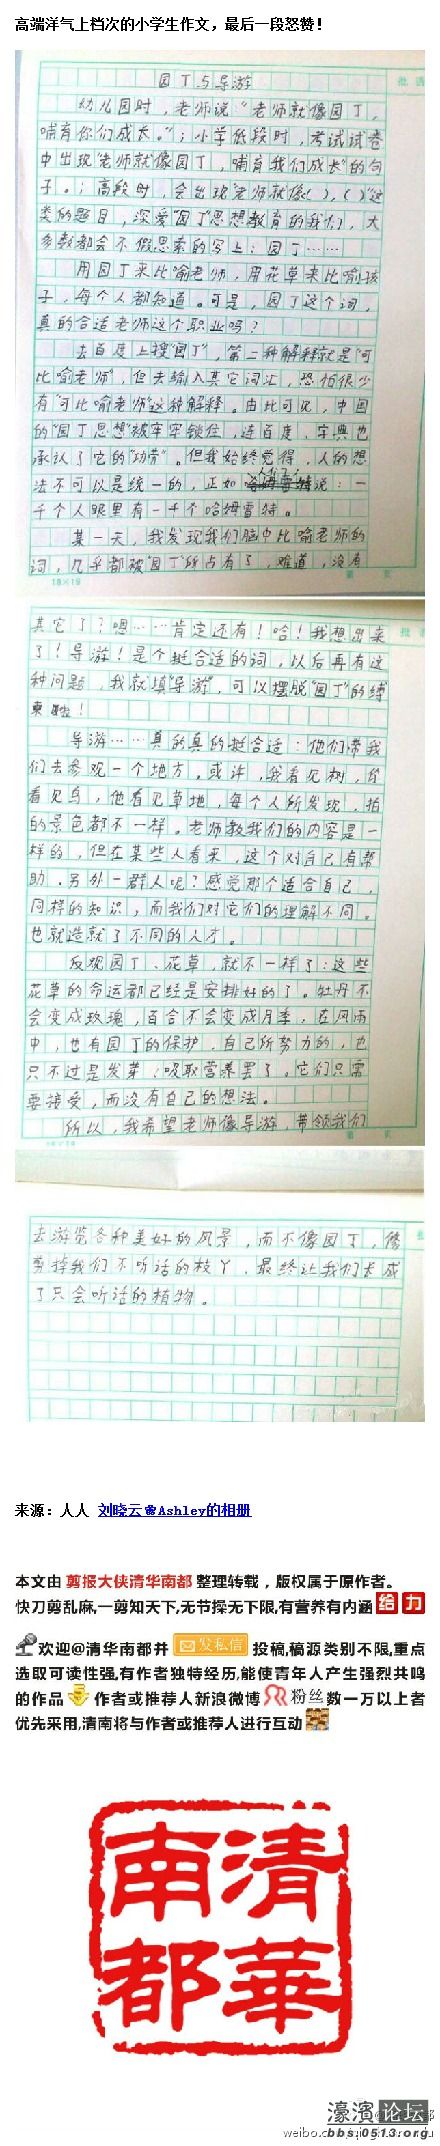 高端洋气上档次的小学生作文，最后一段怒赞！
园丁与导游
幼儿园时，老师说“老师就像园丁，
哺育你们成长。”；小学低段时，考试试卷
中出现“老师就像园丁，哺育我们成长”的句
子。；高段时，会出现“老师就像( )，( )”这
类的题目，深爱“园丁”思想教育的我们，大
多数都会不假思索的写上：园丁……
用园丁来比喻老师，用花草来比喻孩
子，每个人都知道。可是，园丁这个词，
真的合适老师这个职业吗？
去百度上搜“园丁”，第二种解释就是“可
比喻老师”，但去输入其它词汇，恐怕很少
有“可比喻老师”这种解释。由此可见，中国
的“园丁思想”被牢牢锁住，连百度、字典也
承认了它的“功劳”。但我始终觉得，人的想
法不可以是统一的，正如人们说：一
千个人眼里有一千个哈姆雷特。
某一天，我发现我们脑中比喻老师的
词，几乎都被“园丁”所占有了，难道，没有
18×19
其它了？嗯……肯定还有！哈！我想出来
了！导游！是个挺合适的词，以后再有这
种问题，我就填“导游”，可以摆脱“园丁”的缚
束啦！
导游……真的真的挺合适：他们带我
们去参观一个地方。或许，我看见树，你
看见鸟，他看见草地，每个人所发现、拍
的景色都不一样。老师教我们的内容是一
样的，但在某些人看来，这个对自己有帮
助。另外一群人呢？感觉那个适合自己，
同样的知识，而我们对它们的理解不同。
也就造就了不同的人才。
反观园丁、花草，就不一样了：这些
花草的命运都已经是安排好的了。牡丹不
会变成玫瑰，百合不会变成月季；在风雨
中，也有园丁的保护，自己所努力的，也
只不过是发芽、吸取营养罢了。它们只需
要接受，而没有自己的想法。
所以，我希望老师像导游，带领我们
去游览各种美好的风景，而不像园丁，修
剪掉我们不听话的枝丫，最终让我们长成
了只会听话的植物。
来源：人人 刘晓云Ashley的相册
本文由 剪报大侠清华南都 整理转载，版权属于原作者。
快刀剪乱麻,一剪知天下,无节操无下限,有营养有内涵 给 力
欢迎@清华南都并 发私信 投稿,稿源类别不限,重点
选取可读性强,有作者独特经历,能使青年人产生强烈共鸣
的作品 作者或推荐人新浪微博 粉丝数一万以上者
优先采用,清南将与作者或推荐人进行互动
清華南都
濠滨论坛
bbs.0513.org